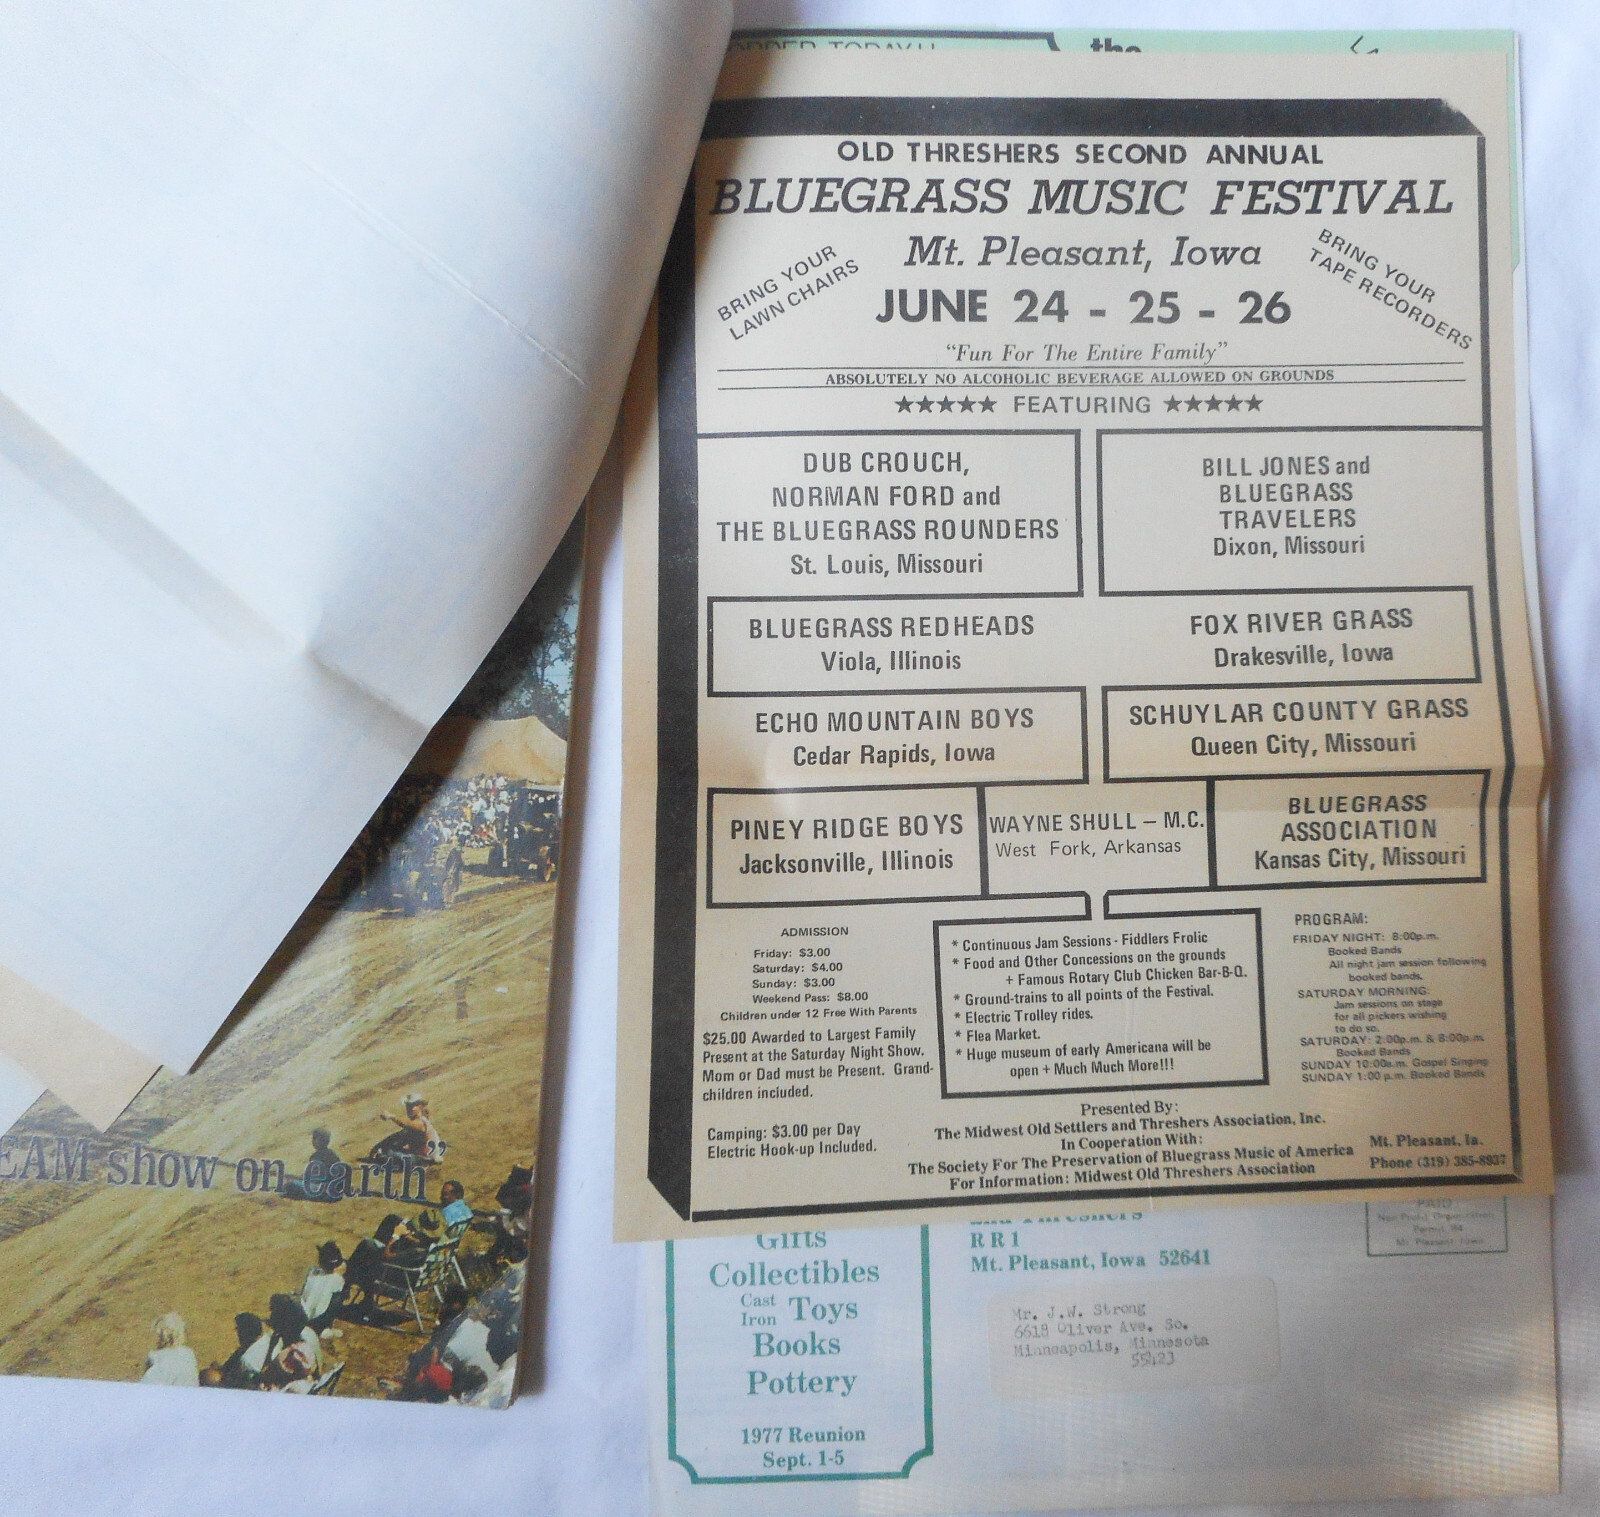 ORDER TODAY!!
the
OLD THRESHERS SECOND ANNUAL
BLUEGRASS MUSIC FESTIVAL
Mt. Pleasant, Iowa
BRING YOUR
LAWN CHAIRS
BRING YOUR
TAPE RECORDERS
JUNE 24 - 25 - 26
"Fun For The Entire Family"
ABSOLUTELY NO ALCOHOLIC BEVERAGE ALLOWED ON GROUNDS
★★★★★ FEATURING ★★★★★
DUB CROUCH,
NORMAN FORD and
THE BLUEGRASS ROUNDERS
St. Louis, Missouri
BILL JONES and
BLUEGRASS
TRAVELERS
Dixon, Missouri
BLUEGRASS REDHEADS
Viola, Illinois
FOX RIVER GRASS
Drakesville, Iowa
ECHO MOUNTAIN BOYS
Cedar Rapids, Iowa
SCHUYLAR COUNTY GRASS
Queen City, Missouri
PINEY RIDGE BOYS
Jacksonville, Illinois
WAYNE SHULL – M.C.
West Fork, Arkansas
BLUEGRASS
ASSOCIATION
Kansas City, Missouri
ADMISSION
Friday: $3.00
Saturday: $4.00
Sunday: $3.00
Weekend Pass: $8.00
Children under 12 Free With Parents
$25.00 Awarded to Largest Family
Present at the Saturday Night Show.
Mom or Dad must be Present. Grand-
children included.
Camping: $3.00 per Day
Electric Hook-up Included.
* Continuous Jam Sessions - Fiddlers Frolic
* Food and Other Concessions on the grounds
+ Famous Rotary Club Chicken Bar-B-Q.
* Ground-trains to all points of the Festival.
* Electric Trolley rides.
* Flea Market.
* Huge museum of early Americana will be
open + Much Much More!!!
PROGRAM:
FRIDAY NIGHT: 8:00p.m.
Booked Bands
All night jam session following
booked bands.
SATURDAY MORNING:
Jam sessions on stage
for all pickers wishing
to do so.
SATURDAY: 2:00p.m. & 8:00p.m.
Booked Bands
SUNDAY 10:00a.m. Gospel Singing
SUNDAY 1:00 p.m. Booked Bands
Presented By:
The Midwest Old Settlers and Threshers Association, Inc.
In Cooperation With:
The Society For The Preservation of Bluegrass Music of America
For Information: Midwest Old Threshers Association
Mt. Pleasant, Ia.
Phone (319) 385-8937
EAM show on earth"
Gifts
Collectibles
Cast
Iron Toys
Books
Pottery
1977 Reunion
Sept. 1-5
and Threshers
R R 1
Mt. Pleasant, Iowa 52641
PAID
Non Profit Organization
Permit 84
Mt. Pleasant Iowa
Mr. J.W. Strong
6618 Oliver Ave. So.
Minneapolis, Minnesota
55423